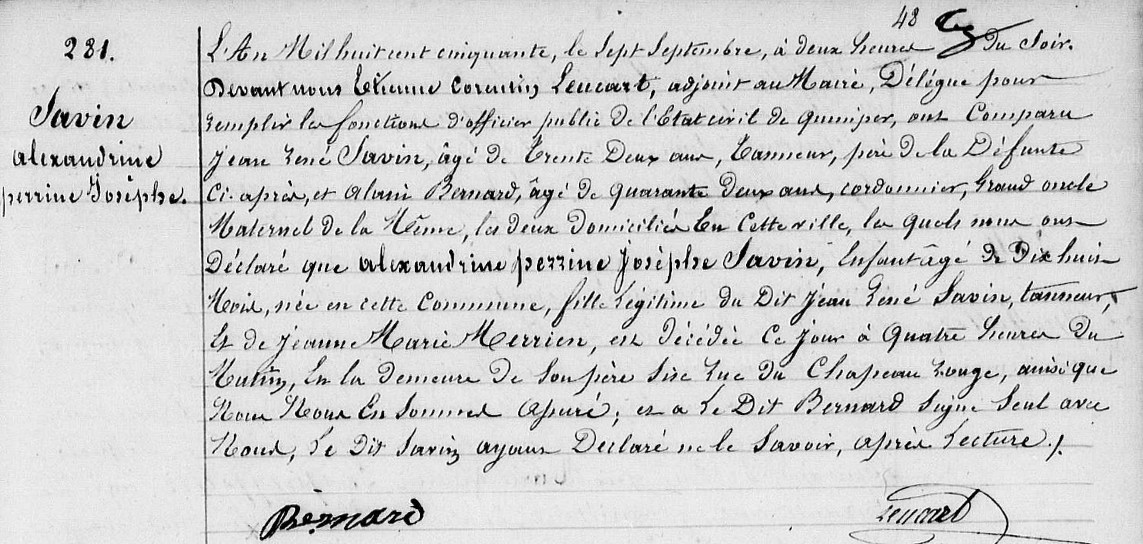 48
281.
Savin
alexandrine
perrine Josèphe.
L'An Mil huit cent cinquante, le Sept Septembre, à deux heures du Soir.
Devant nous Etienne Corentin Leucart, adjoint au Maire, Délégué pour
remplir les fonctions d'officier public de l'Etat civil de quimper, ont Comparu
Jean René Savin, âgé de Trente Deux ans, Tanneur, père de la Défunte
Ci-après, et Alain Bernard, âgé de quarante deux ans, cordonnier, Grand oncle
Maternel de la Même, les deux Domiciliés En Cette ville, les quels nous ont
Déclaré que alexandrine perrine Josèphe Savin, Enfant âgé de Dix huit
Mois, née en cette Commune, fille Légitime du Dit Jean René Savin, tanneur,
Et de Jeanne Marie Merrien, est Décédée Ce Jour à quatre heures du
Matin, En la Demeure de Son père Sise rue du Chapeau rouge, ainsi que
Nous Nous En Sommes assuré; et a Le Dit Bernard Signé Seul avec
Nous, Le Dit Savin ayant Déclaré ne le Savoir, après Lecture ./.
Bernard
Leucart